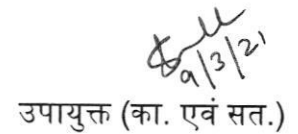 9/3/21
उपायुक्त (का. एवं सत.)